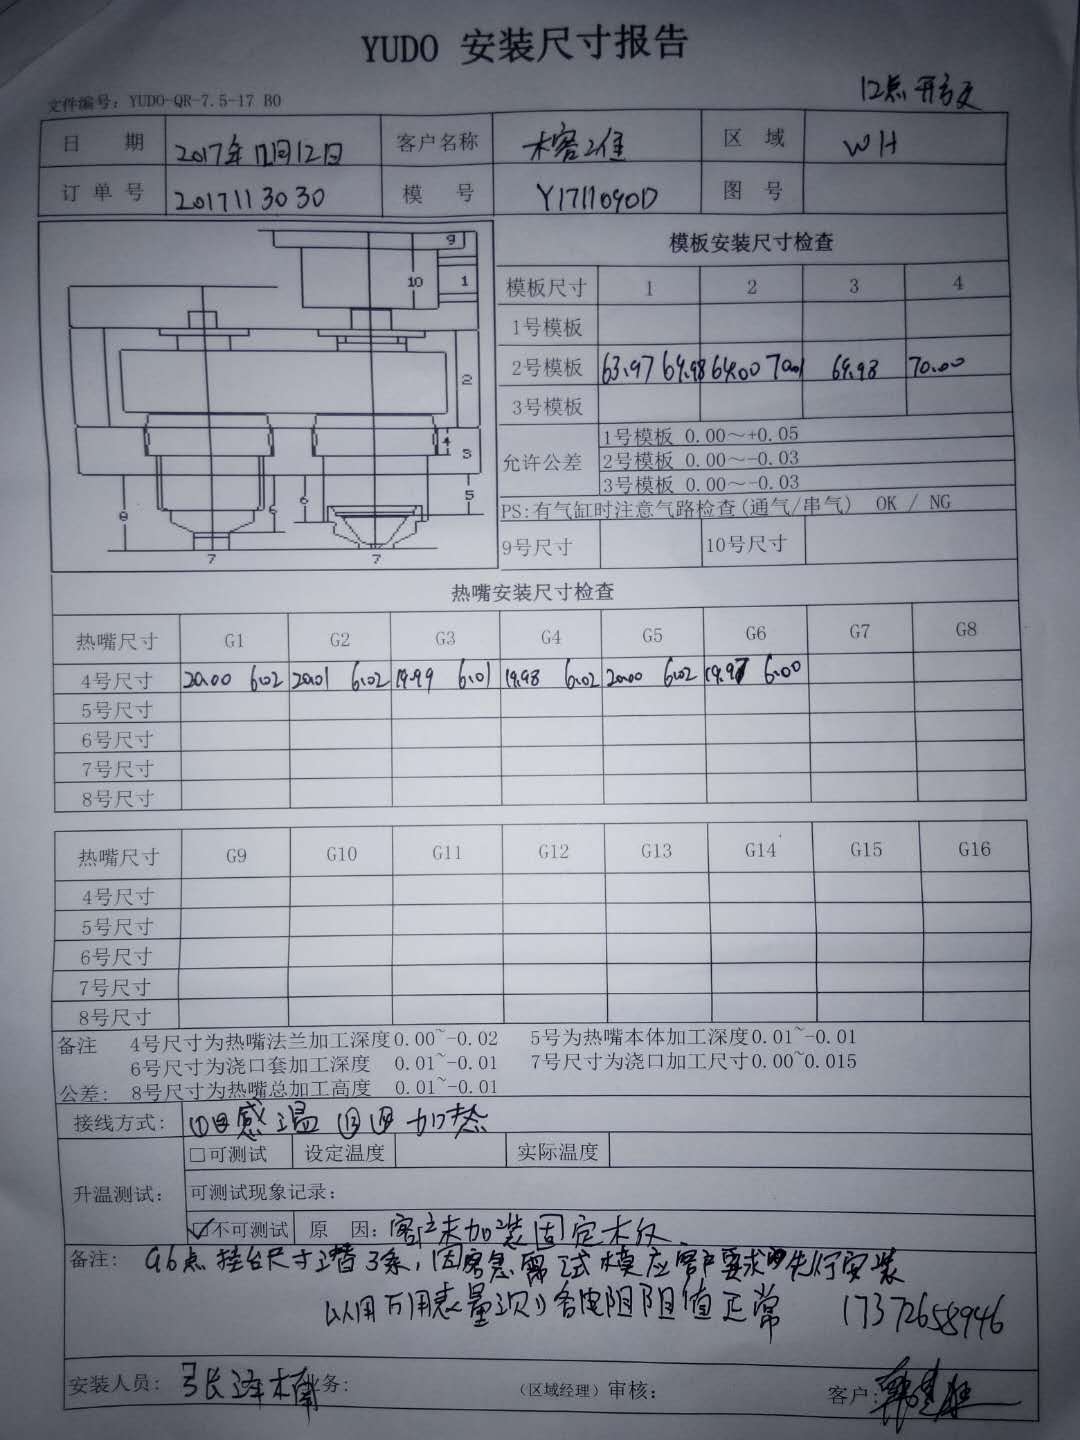 YUDO 安装尺寸报告
12点 开放
文件编号：YUDO-QR-7.5-17 B0
日 期 2017年12月12日 客户名称 区 域 WH
订 单 号 2017113030 模 号 Y1711090D 图 号
模板安装尺寸检查
9
10 1
2
4
3
5
8 6 6
7 7
模板尺寸 1 2 3 4
1号模板
2号模板 63.97 69.98 64.00 70.01 69.98 70.00
3号模板
允许公差 1号模板 0.00～+0.05
2号模板 0.00～-0.03
3号模板 0.00～-0.03
PS:有气缸时注意气路检查(通气/串气) OK / NG
9号尺寸 10号尺寸
热嘴安装尺寸检查
热嘴尺寸 G1 G2 G3 G4 G5 G6 G7 G8
4号尺寸 20.00 6.02 20.01 6.02 19.99 6.01 19.98 6.02 20.00 6.02 19.97 6.00
5号尺寸
6号尺寸
7号尺寸
8号尺寸
热嘴尺寸 G9 G10 G11 G12 G13 G14 G15 G16
4号尺寸
5号尺寸
6号尺寸
7号尺寸
8号尺寸
备注 4号尺寸为热嘴法兰加工深度0.00~-0.02 5号为热嘴本体加工深度0.01~-0.01
6号尺寸为浇口套加工深度 0.01~-0.01 7号尺寸为浇口加工尺寸0.00~0.015
公差: 8号尺寸为热嘴总加工高度 0.01~-0.01
接线方式: 感温 加热
升温测试: □可测试 设定温度 实际温度
可测试现象记录:
☑不可测试 原 因: 客户未加装固定木仅
备注: G6点挂台尺寸 3条,因客急需试模应客户要求先行安装
以用万用表量 各电阻阻值正常 17372658946
安装人员: 张泽楠 务: (区域经理)审核: 客户: